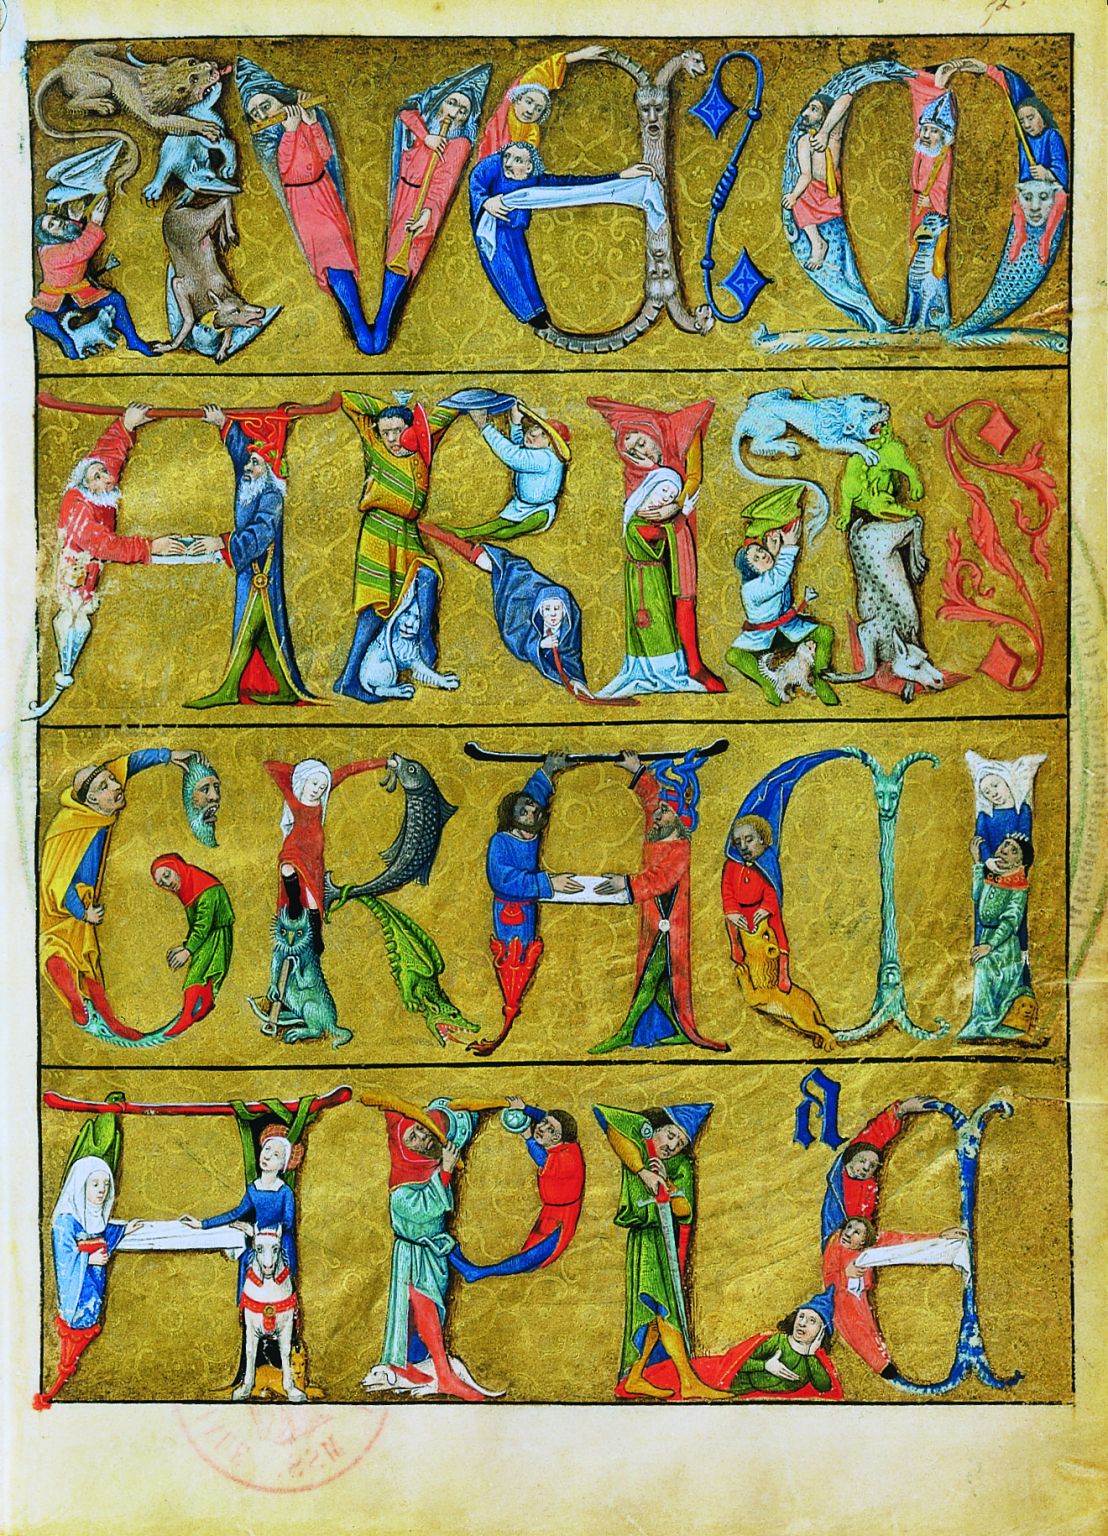 AVE M
ARIA
GRACI
A PLEa